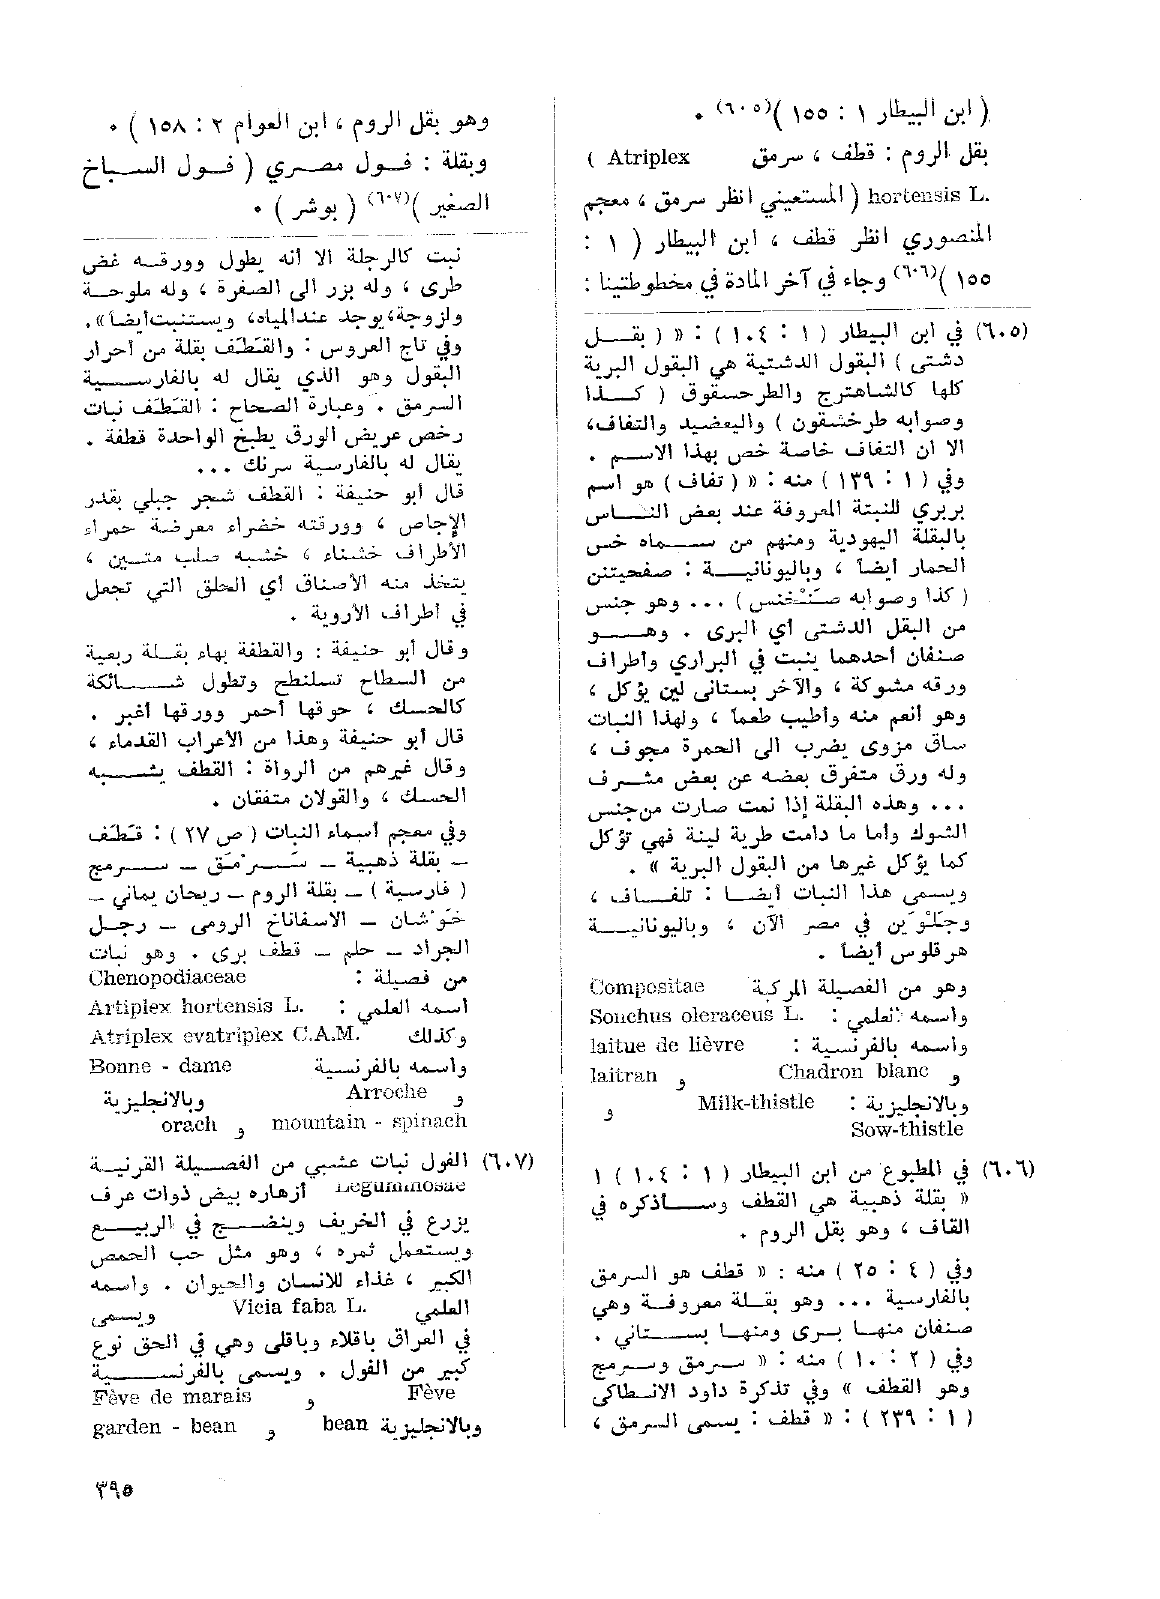 ( ابن البيطار ١ : ١٥٥ )(٦٠٥) ٠
بقل الروم : قطف ، سرمق Atriplex )
hortensis L. ( المستعيني انظر سرمق ، معجم
المنصوري انظر قطف ، ابن البيطار ( ١ :
١٥٥ )(٦٠٦) وجاء في آخر المادة في مخطوطتينا :
وهو بقل الروم ، ابن العوام ٢ : ١٥٨ ) ٠
وبقلة : فول مصري ( فول السباخ
الصغير )(٦٠٧) ( بوشر ) ٠
(٦٠٥) في ابن البيطار ( ١ : ١٠٤ ) : « ( بقل
دشتى ) البقول الدشتية هي البقول البرية
كلها كالشاهترج والطرحسقوق ( كذا
وصوابه طرخشقون ) واليعضيد والتفاف،
الا ان التفاف خاصة خص بهذا الاسم .
وفي ( ١ : ١٣٩ ) منه : « ( تفاف ) هو اسم
بربري للنبتة المعروفة عند بعض الناس
بالبقلة اليهودية ومنهم من سماه خس
الحمار أيضاً ، وباليونانية : صفحيتنن
( كذا وصوابه صنخس ) ... وهو جنس
من البقل الدشتى أي البرى . وهو
صنفان أحدهما ينبت في البراري وأطراف
ورقه مشوكة ، والآخر بستانى لين يؤكل ،
وهو أنعم منه وأطيب طعماً ، ولهذا النبات
ساق مزوى يضرب الى الحمرة مجوف ،
وله ورق متفرق بعضه عن بعض مشرف
... وهذه البقلة إذا نمت صارت من جنس
الشوك وأما ما دامت طرية لينة فهي تؤكل
كما يؤكل غيرها من البقول البرية » .
ويسمى هذا النبات أيضا : تلفاف ،
وجلوين في مصر الآن ، وباليونانية
هرقلوس أيضاً .
وهو من الفصيلة المركبة Compositae
واسمه العلمي : Sonchus oleraceus L.
واسمه بالفرنسية : laitue de lièvre
و Chadron blanc و laitran
وبالانجليزية : Milk-thistle و
Sow-thistle
(٦٠٦) في المطبوع من ابن البيطار ( ١ : ١٠٤ ) ١
« بقلة ذهبية هي القطف وساذكره في
القاف ، وهو بقل الروم .
وفي ( ٤ : ٢٥ ) منه : « قطف هو السرمق
بالفارسية ... وهو بقلة معروفة وهي
صنفان منها برى ومنها بستاني .
وفي ( ٢ : ١٠ ) منه : « سرمق وسرمج
وهو القطف » وفي تذكرة داود الانطاكى
( ١ : ٢٣٩ ) : « قطف : يسمى السرمق ،
نبت كالرجلة الا أنه يطول وورقه غض
طرى ، وله بزر الى الصفرة ، وله ملوحة
ولزوجة، يوجد عند المياه، ويستنبت أيضاً».
وفي تاج العروس : والقَطَف بقلة من أحرار
البقول وهو الذي يقال له بالفارسية
السرمق . وعبارة الصحاح : القَطَف نبات
رخص عريض الورق يطبخ الواحدة قطفة .
يقال له بالفارسية سرنك ...
قال أبو حنيفة : القطف شجر جبلي بقدر
الإجاص ، وورقته خضراء معرضة حمراء
الأطراف خشناء ، خشبه صلب متين ،
يتخذ منه الأصناق أي الحلق التي تجعل
في أطراف الأروية .
وقال أبو حنيفة : والقطفة بهاء بقلة ربعية
من السطاح تسلنطح وتطول شائكة
كالحسك ، جوقها أحمر وورقها أغبر .
قال أبو حنيفة وهذا من الأعراب القدماء ،
وقال غيرهم من الرواة : القطف يشبه
الحسك ، والقولان متفقان .
وفي معجم أسماء النبات ( ص ٢٧ ) : قَطَف
– بقلة ذهبية – سَرْمَق – سرمج
( فارسية ) – بقلة الروم – ريحان يماني –
خَوْشان – الاسفاناخ الرومى – رجل
الجراد – حلم – قطف برى . وهو نبات
من فصيلة : Chenopodiaceae
اسمه العلمي : Artiplex hortensis L.
وكذلك Atriplex evatriplex C.A.M.
واسمه بالفرنسية Bonne - dame
و Arroche وبالانجليزية
mountain - spinach و orach
(٦٠٧) الفول نبات عشبي من الفصيلة القرنية
Leguminosae أزهاره بيض ذوات عرف
يزرع في الخريف وينضج في الربيع
ويستعمل ثمره ، وهو مثل حب الحمص
الكبير ، غذاء للانسان والحيوان . واسمه
العلمي Vicia faba L. ويسمى
في العراق باقلاء وباقلى وهي في الحق نوع
كبير من الفول . ويسمى بالفرنسية
Fève و Fève de marais
وبالانجليزية bean و garden - bean
٣٩٥